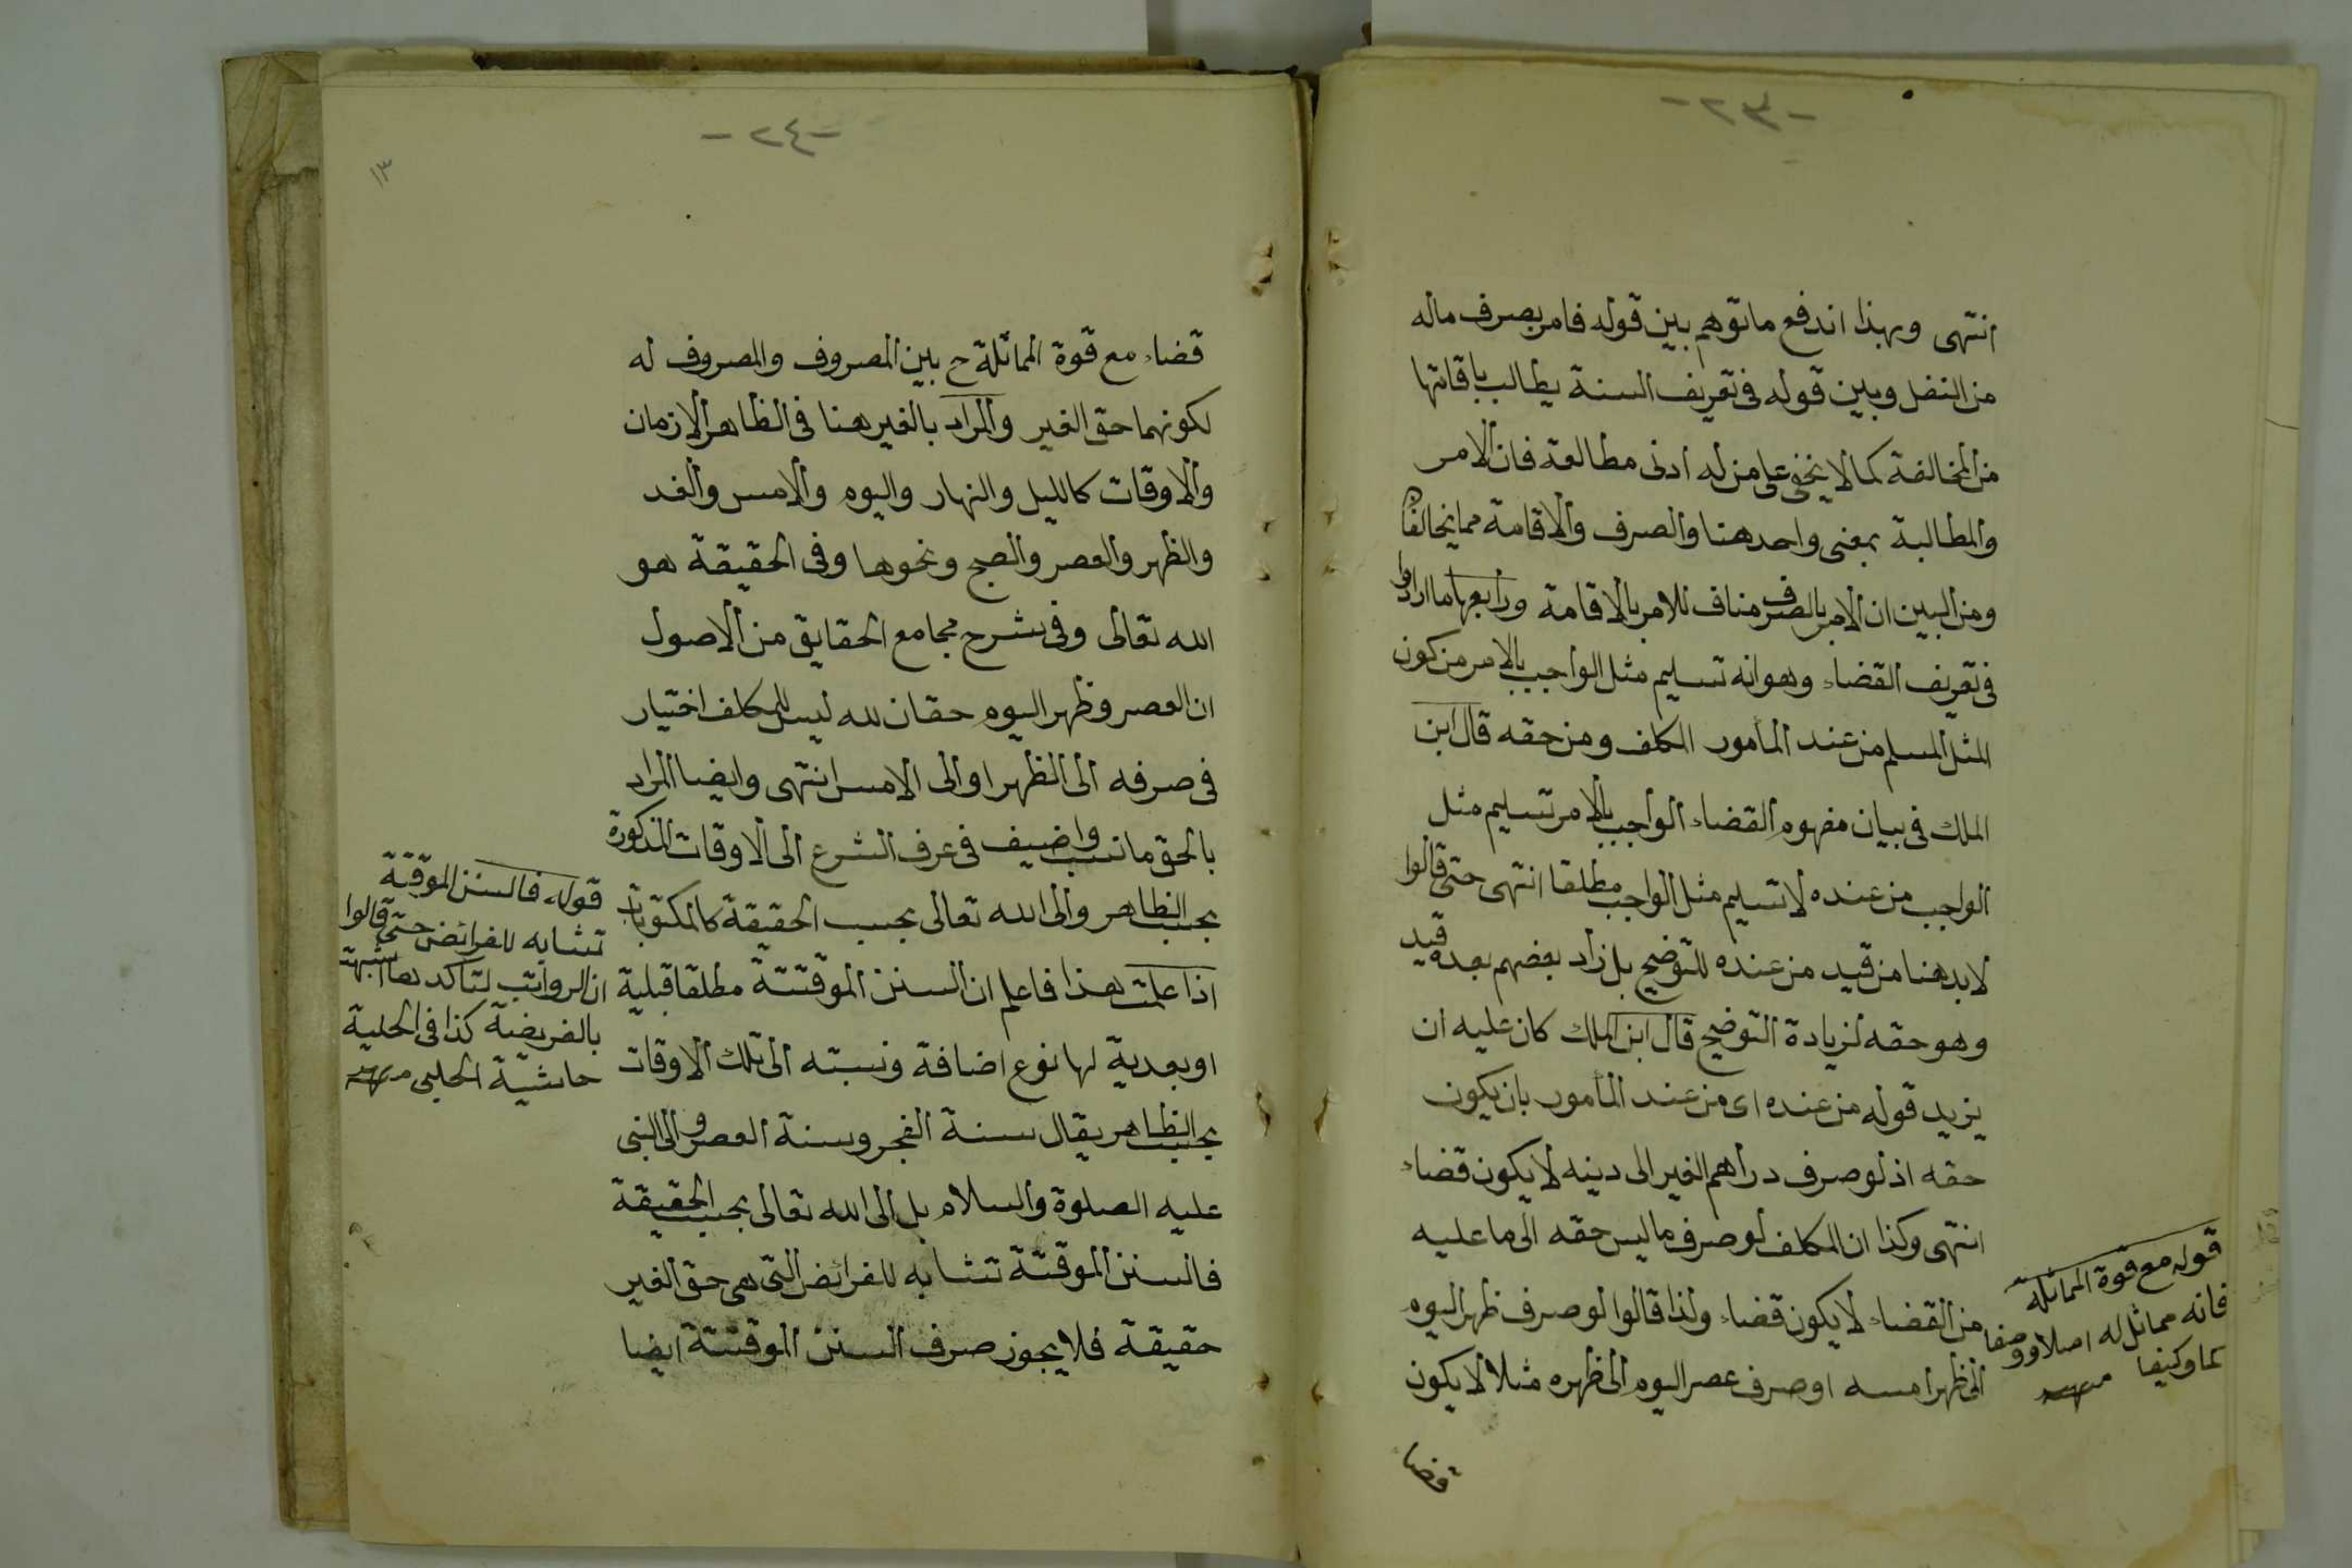 -٢٣-
انتهى وبهذا اندفع ما توهم بين قوله فامر بصرف ماله
من النفل وبين قوله فى تعريف السنة يطالب باقامتها
من المخالفة كما لا يخفى على من له ادنى مطالعة فان الامر
والمطالبة بمعنى واحد هنا والصرف والاقامة مما يخالفا
ومن البين ان الامر بالصرف مناف للامر بالاقامة ورابعها ما ارادوا
فى تعريف القضاء وهو انه تسليم مثل الواجب بالامر من كون
المثل المسلم من عند المأمور المكلف ومن حقه قال ابن
الملك فى بيان مفهوم القضاء الواجب بالامر تسليم مثل
الواجب من عنده لا تسليم مثل الواجب مطلقا انتهى حتى قالوا
لابد هنا من قيد من عنده للتوضيح بل زاد بعضهم بعده قيد
وهو حقه لزيادة التوضيح قال ابن الملك كان عليه ان
يزيد قوله من عنده اى من عند المأمور بان يكون
حقه اذ لو صرف دراهم الغير الى دينه لا يكون قضاء
انتهى وكذا ان المكلف لو صرف ما ليس حقه الى ما عليه
من القضاء لا يكون قضاء ولذا قالوا لو صرف ظهر اليوم
الى ظهر امسه او صرف عصر اليوم الى ظهره مثلا لا يكون
قضاء
قوله مع قوة المماثلة
فانه مماثل له اصلا ووصفا
كما وكيفا منه
-٢٤-
١٣
قضاء مع قوة المماثلة ح بين المصروف والمصروف له
لكونهما حق الغير والمراد بالغير هنا فى الظاهر الازمان
والاوقات كالليل والنهار واليوم والامس والغد
والظهر والعصر والصبح ونحوها وفى الحقيقة هو
الله تعالى وفى شرح مجامع الحقايق من الاصول
ان العصر وظهر اليوم حقان لله ليس للمكلف اختيار
فى صرفه الى الظهر او الى الامس انتهى وايضا المراد
بالحق ما نسب واضيف فى عرف الشرع الى الاوقات المذكورة
بحسب الظاهر والى الله تعالى بحسب الحقيقة كالمكتوبات
اذا علمت هذا فاعلم ان السنن الموقتة مطلقا قبلية
او بعدية لها نوع اضافة ونسبته الى تلك الاوقات
بحسب الظاهر يقال سنة الفجر وسنة العصر والى النبى
عليه الصلوة والسلام بل الى الله تعالى بحسب الحقيقة
فالسنن الموقتة تشابه للفرائض التى هى حق الغير
حقيقة فلا يجوز صرف السنن الموقتة ايضا
قوله فالسنن الموقتة
تشابه للفرائض حتى قالوا
ان الرواتب لتاكدها اشبهت
بالفريضة كذا فى الحلية
حاشية الحلبى منه